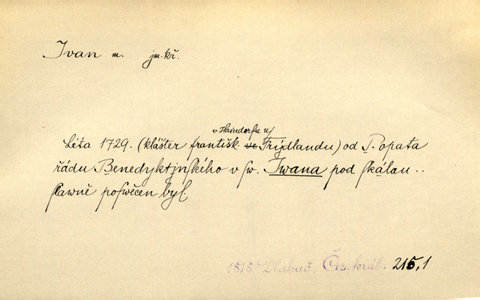 Ivan m. jm. kř.
v Haindorfu u
Léta 1729. (klášter františk ve Frýdlandu) od P. Opata
řádu Benedyktjnského v Sw. Iwana pod skálau..
slawně poswěcen byl
1818 Dlabač, Čes. král. 215,1